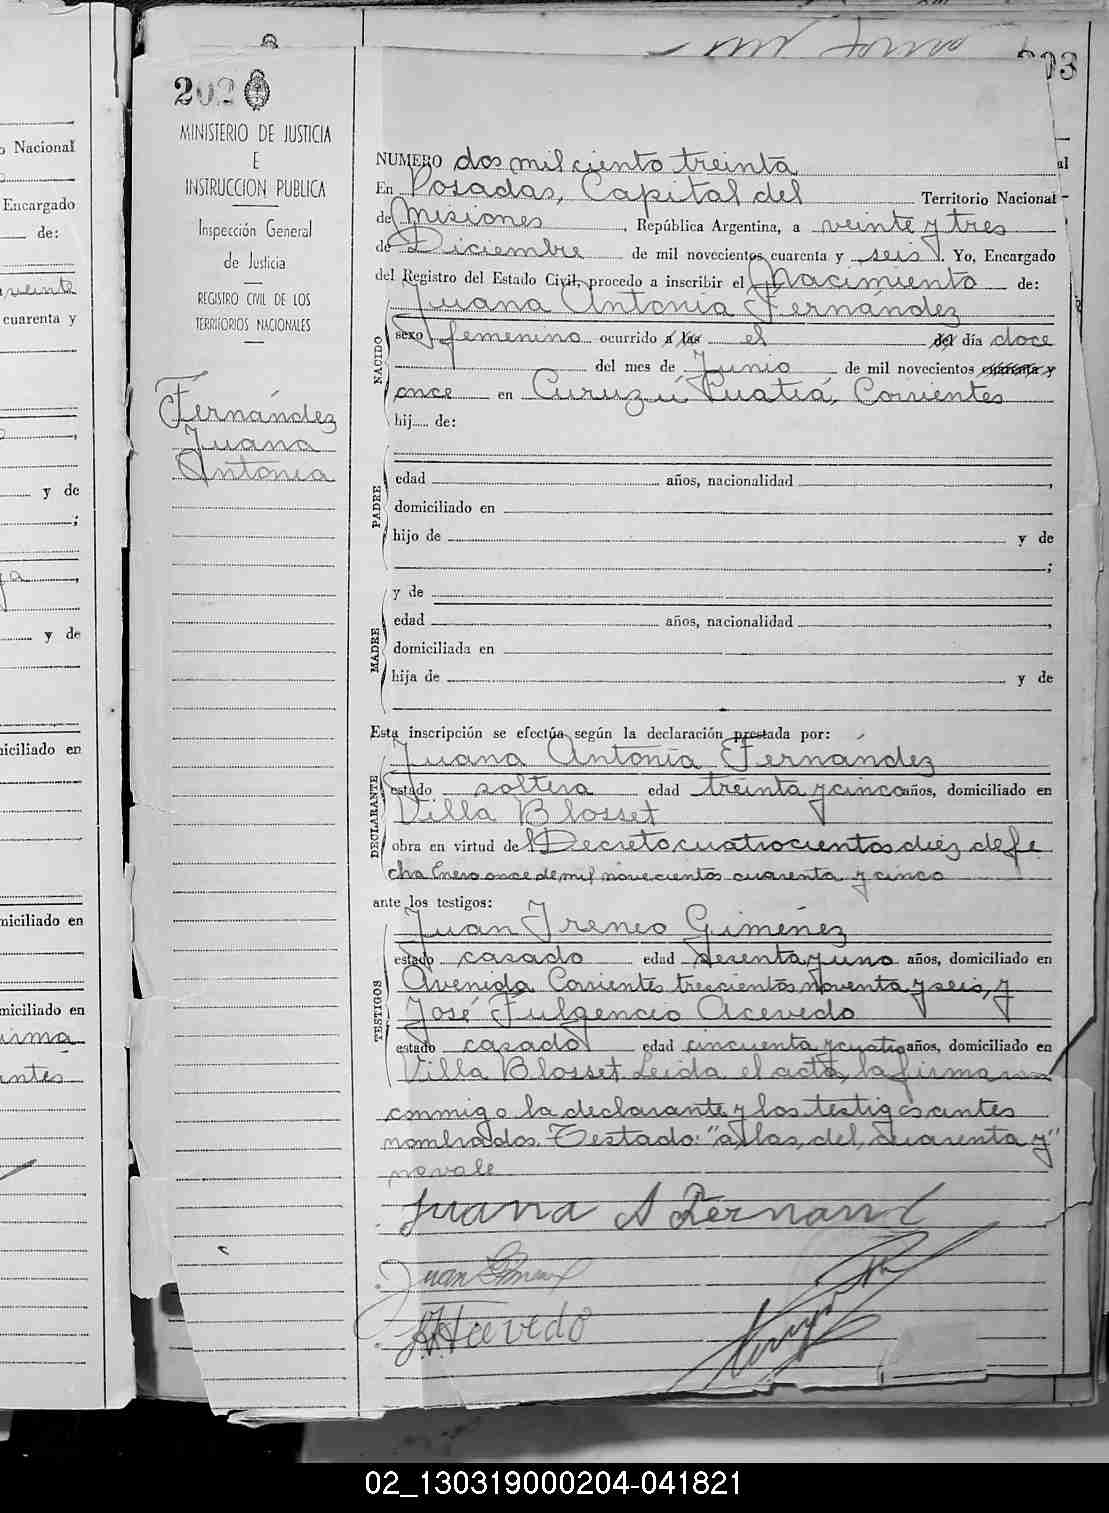 o Nacional
Encargado
de:
veinte
cuarenta y
y de
y de
niciliado en
niciliado en
miciliado en
irma
antes
203
202
MINISTERIO DE JUSTICIA
E
INSTRUCCION PUBLICA
Inspección General
de Justicia
REGISTRO CIVIL DE LOS
TERRITORIOS NACIONALES
Fernández
Juana
Antonia
NUMERO dos mil ciento treinta
En Posadas, Capital del Territorio Nacional
de Misiones, República Argentina, a veinte y tres
de Diciembre de mil novecientos cuarenta y seis. Yo, Encargado
del Registro del Estado Civil, procedo a inscribir el Nacimiento de:
Juana Antonia Fernández
NACIDO
sexo femenino ocurrido a las el del día doce
del mes de Junio de mil novecientos cuarenta y
once en Curuzú Cuatiá, Corrientes
hij de:
PADRE
edad años, nacionalidad ,
domiciliado en
hijo de y de
;
MADRE
y de
edad años, nacionalidad ,
domiciliada en
hija de y de
Esta inscripción se efectúa según la declaración prestada por:
DECLARANTE
Juana Antonia Fernández
estado soltera edad treinta y cinco años, domiciliado en
Villa Blosset
obra en virtud del Decreto cuatrocientos diez de fe
cha Enero once de mil novecientos cuarenta y cinco
ante los testigos:
TESTIGOS
Juan Ireneo Giménez
estado casado edad sesenta y uno años, domiciliado en
Avenida Corrientes trescientos noventa y seis, y
José Fulgencio Acevedo
estado casado edad cincuenta y cuatro años, domiciliado en
Villa Blosset. Leida el acta, la firman
conmigo la declarante y los testigos antes
nombrados. Testado: "a las, del, cuarenta y"
no vale
Juana A Fernand
Juan Gimenez
J.F. Acevedo
02_130319000204-041821